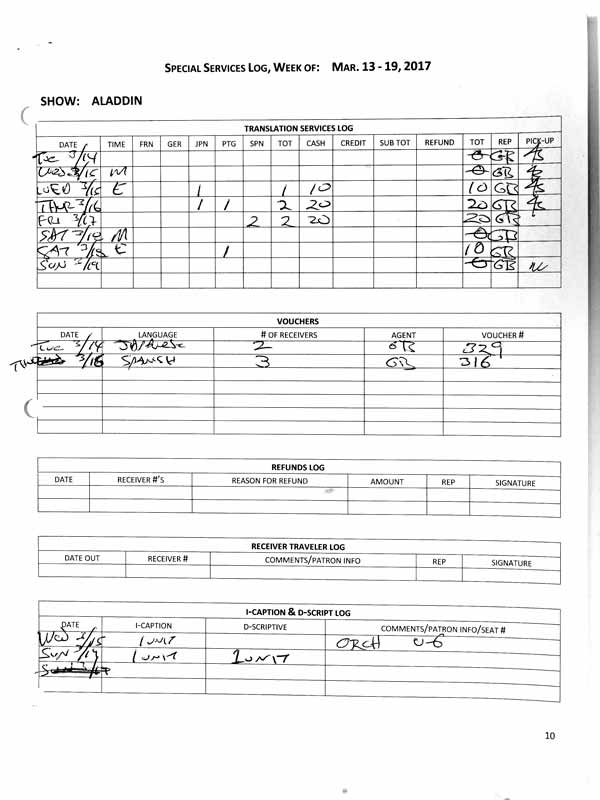 SPECIAL SERVICES LOG, WEEK OF: MAR. 13 - 19, 2017
SHOW: ALADDIN
TRANSLATION SERVICES LOG
DATE TIME FRN GER JPN PTG SPN TOT CASH CREDIT SUB TOT REFUND TOT REP PICK-UP
TUE 3/14 0 GB
WED 3/15 M 0 GB
WED 3/15 E 1 1 10 10 GB
THUR 3/16 1 1 2 20 20 GB
FRI 3/17 2 2 20 20 GB
SAT 3/18 M 0 GB
SAT 3/18 E 1 10 GB
SUN 3/19 0 GB NC
VOUCHERS
DATE LANGUAGE # OF RECEIVERS AGENT VOUCHER #
TUE 3/14 JAPANESE 2 GB 329
3/16 SPANISH 3 GB 316
REFUNDS LOG
DATE RECEIVER #'S REASON FOR REFUND AMOUNT REP SIGNATURE
RECEIVER TRAVELER LOG
DATE OUT RECEIVER # COMMENTS/PATRON INFO REP SIGNATURE
I-CAPTION & D-SCRIPT LOG
DATE I-CAPTION D-SCRIPTIVE COMMENTS/PATRON INFO/SEAT #
WED 3/15 1 UNIT ORCH U-6
SUN 3/19 1 UNIT 1 UNIT
10